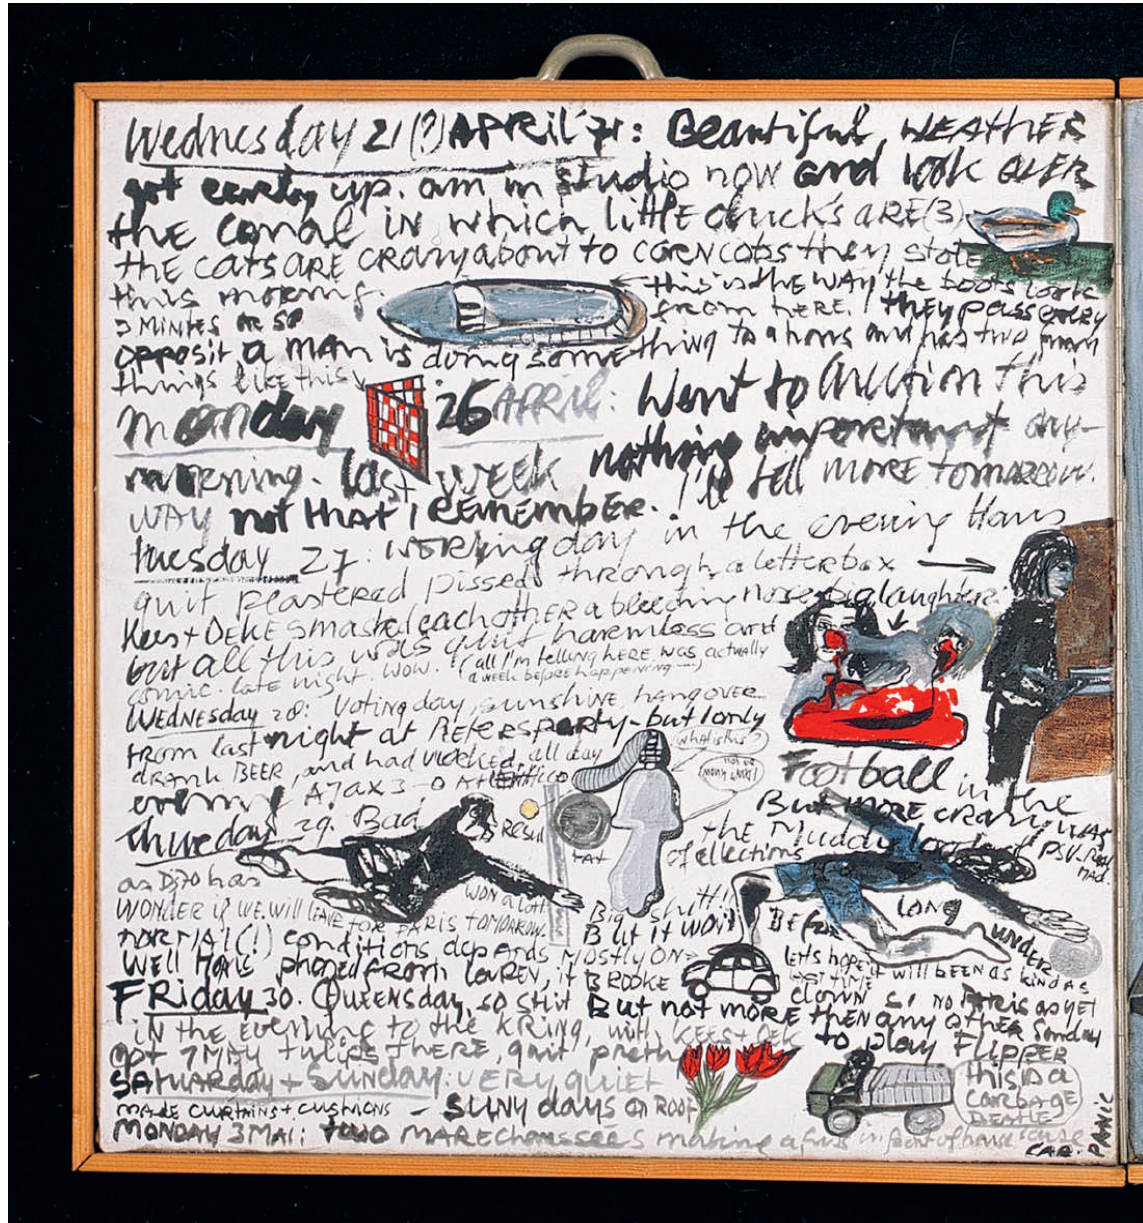 Wednesday 21(?) APRIL '71: Beautiful WEATHER
got early up. am in studio now and look OVER
the canal in which little ducks ARE (3)
the CATS ARE CRAZY about to CORNCOBS they stole
this morning.
this is the WAY the boots look
from HERE. they pass every
3 MINTES OR SO
opposit a man is doing something to a hous and has two
things like this
monday 26 APRIL: Went to AUCTION this
morning. last WEEK nothing important any-
way not that I REMEMBER. I'll tell MORE TOMORROW.
tuesday 27: working day in the evening Hans
quit plastered pissed through a letterbox
Kees + DEKE smashed each other a bleeding nose big laughter
but all this was quit harmless and
comic. late night. wow. (all I'm telling HERE was actually
a week before happening ---)
WEDNESDAY 28: Voting day, sunshine, hangover...
from last night at PETERS PARTY - but I only
drank BEER, and had worked all day
what is this?
Football in the
evening AJAX 3-0
But MORE
Thursday 29. Bad
RESUL
of ellections
the Muddy
PSV-Real
MAD.
as Djo has
WON a LOTT
WONDER if WE WILL LEAVE FOR PARIS TOMORROW.
Big shitt!
But it WONT
BEFOR
LONG
UNDER
NORMAL (!) conditions depends MOSTLY ON
WELL HANS phoned from LOREN, it BROOKE
down
LETS HOPE it will BEEN AS KIND AS
LAST TIME
so NO PARIS AS YET
FRiday 30. QUEENSday, so shit But not more then any other Sunday
in the evening to the KRING, with KEES + DEK to play FLIPPER
opt 7 MAY tulips THERE, quit pretty
this is a
CARBAGE
BEATLE
SATURDAY + SUNDAY: VERY quiet
MADE CURTAINS + CUSHIONS - SUNY days on ROOF
MONDAY 3 MAI: two MAREchaussées making a fus in front of house
CAR. PANIC